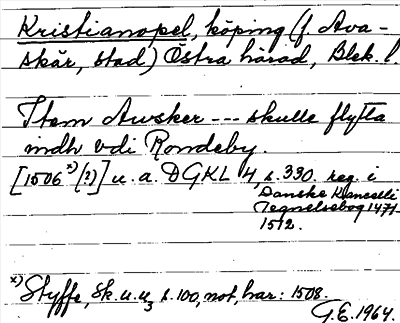 Kristianopel, köping (f. Ava-
skär, stad) Östra härad, Blek. l.
Item Awsker --- skulle flytta
indh vdi Rondeby.
[1506 x)(?)] u.a. DGKL 4 s. 330. reg. i
Danske Kancelli
Tegnelsebog 1471-
1512.
x) Styffe, Sk. u. u3 s. 100, not, har: 1508.
G.E. 1964.